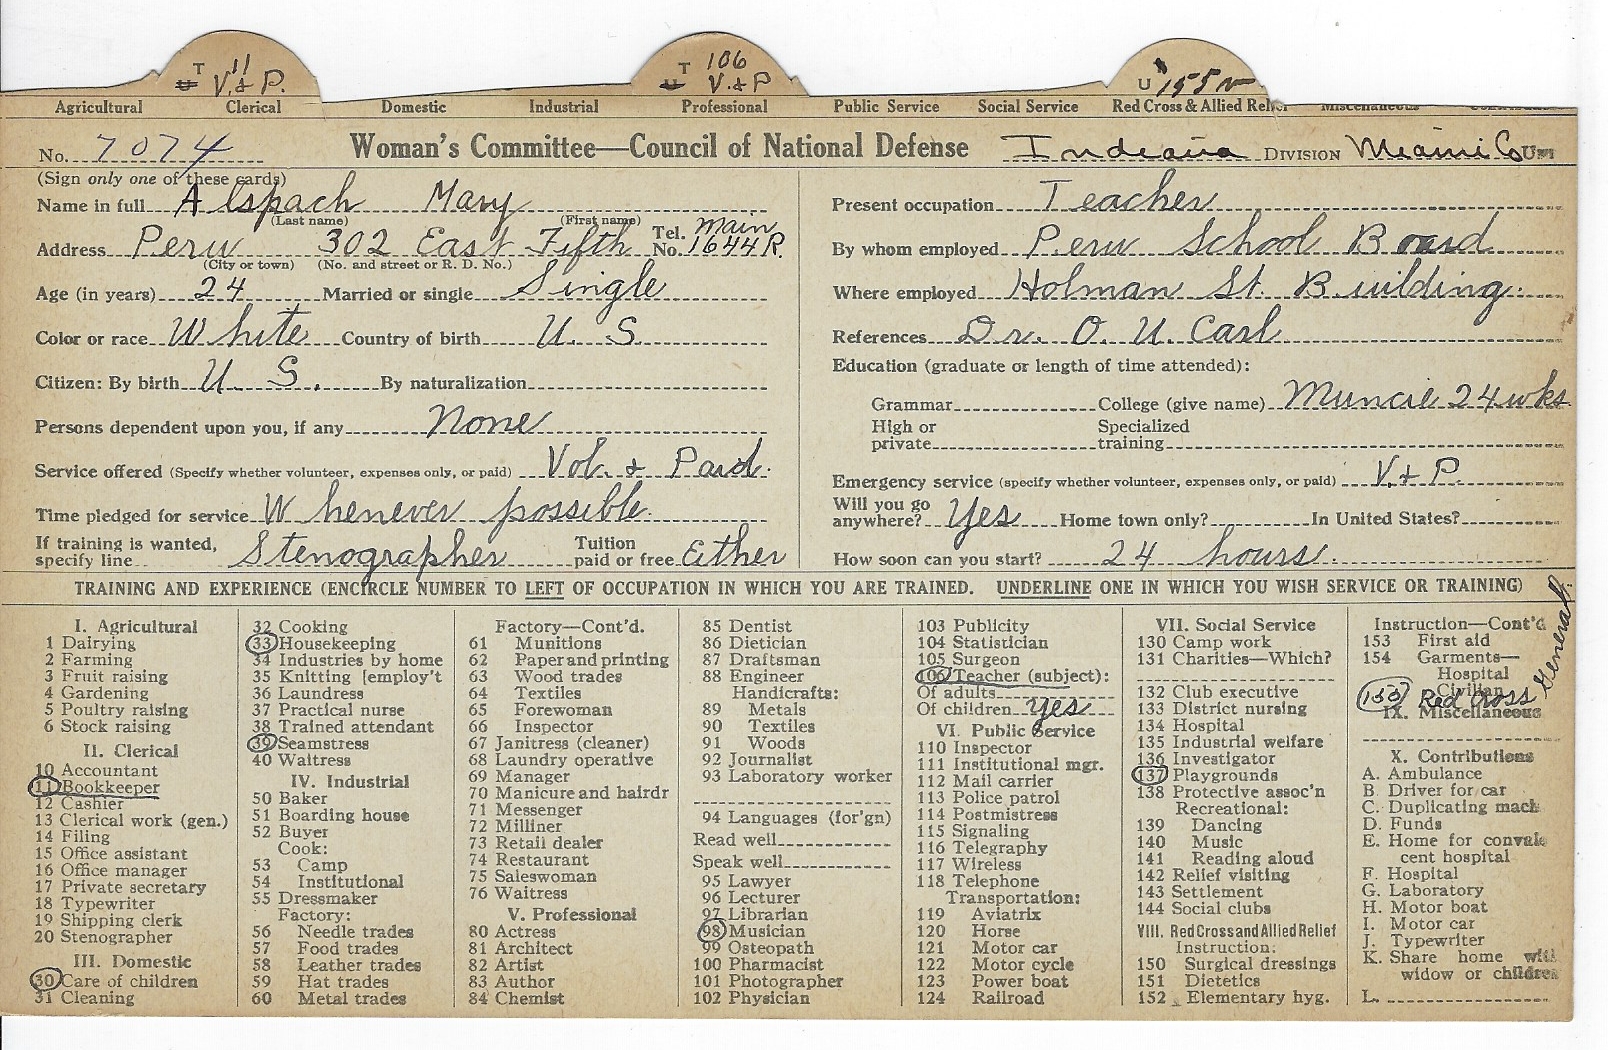 T 11 T 106 U 155 v
U V. & P. U V. & P
Agricultural Clerical Domestic Industrial Professional Public Service Social Service Red Cross & Allied Relief Miscellaneous
No. 7074 Woman's Committee—Council of National Defense Indiana DIVISION Miami Co
(Sign only one of these cards)
Name in full Alspach Mary
(Last name) (First name)
Address Peru 302 East Fifth Tel. No. Main 1644R
(City or town) (No. and street or R. D. No.)
Age (in years) 24 Married or single Single
Color or race White Country of birth U. S.
Citizen: By birth U. S. By naturalization
Persons dependent upon you, if any None
Service offered (Specify whether volunteer, expenses only, or paid) Vol. & Paid.
Time pledged for service Whenever possible
If training is wanted, Tuition
specify line Stenographer paid or free Either
Present occupation Teacher
By whom employed Peru School Board
Where employed Holman St. Building.
References Dr. O. U. Carl
Education (graduate or length of time attended):
Grammar College (give name) Muncie 24 wks
High or Specialized
private training
Emergency service (specify whether volunteer, expenses only, or paid) V. & P.
Will you go
anywhere? Yes Home town only? In United States?
How soon can you start? 24 hours.
TRAINING AND EXPERIENCE (ENCIRCLE NUMBER TO LEFT OF OCCUPATION IN WHICH YOU ARE TRAINED. UNDERLINE ONE IN WHICH YOU WISH SERVICE OR TRAINING)
I. Agricultural
1 Dairying
2 Farming
3 Fruit raising
4 Gardening
5 Poultry raising
6 Stock raising
II. Clerical
10 Accountant
11 Bookkeeper
12 Cashier
13 Clerical work (gen.)
14 Filing
15 Office assistant
16 Office manager
17 Private secretary
18 Typewriter
19 Shipping clerk
20 Stenographer
III. Domestic
30 Care of children
31 Cleaning
32 Cooking
33 Housekeeping
34 Industries by home
35 Knitting [employ't
36 Laundress
37 Practical nurse
38 Trained attendant
39 Seamstress
40 Waitress
IV. Industrial
50 Baker
51 Boarding house
52 Buyer
Cook:
53 Camp
54 Institutional
55 Dressmaker
Factory:
56 Needle trades
57 Food trades
58 Leather trades
59 Hat trades
60 Metal trades
Factory—Cont'd.
61 Munitions
62 Paper and printing
63 Wood trades
64 Textiles
65 Forewoman
66 Inspector
67 Janitress (cleaner)
68 Laundry operative
69 Manager
70 Manicure and hairdr
71 Messenger
72 Milliner
73 Retail dealer
74 Restaurant
75 Saleswoman
76 Waitress
V. Professional
80 Actress
81 Architect
82 Artist
83 Author
84 Chemist
85 Dentist
86 Dietician
87 Draftsman
88 Engineer
Handicrafts:
89 Metals
90 Textiles
91 Woods
92 Journalist
93 Laboratory worker
94 Languages (for'gn)
Read well
Speak well
95 Lawyer
96 Lecturer
97 Librarian
98 Musician
99 Osteopath
100 Pharmacist
101 Photographer
102 Physician
103 Publicity
104 Statistician
105 Surgeon
106 Teacher (subject):
Of adults
Of children yes
VI. Public Service
110 Inspector
111 Institutional mgr.
112 Mail carrier
113 Police patrol
114 Postmistress
115 Signaling
116 Telegraphy
117 Wireless
118 Telephone
Transportation:
119 Aviatrix
120 Horse
121 Motor car
122 Motor cycle
123 Power boat
124 Railroad
VII. Social Service
130 Camp work
131 Charities—Which?
132 Club executive
133 District nursing
134 Hospital
135 Industrial welfare
136 Investigator
137 Playgrounds
138 Protective assoc'n
Recreational:
139 Dancing
140 Music
141 Reading aloud
142 Relief visiting
143 Settlement
144 Social clubs
VIII. Red Cross and Allied Relief
Instruction:
150 Surgical dressings
151 Dietetics
152 Elementary hyg.
Instruction—Cont'd
153 First aid
154 Garments—
Hospital
Civilian
155 Red Cross General
IX. Miscellaneous
X. Contributions
A. Ambulance
B. Driver for car
C. Duplicating mach
D. Funds
E. Home for convale
cent hospital
F. Hospital
G. Laboratory
H. Motor boat
I. Motor car
J. Typewriter
K. Share home with
widow or children
L.